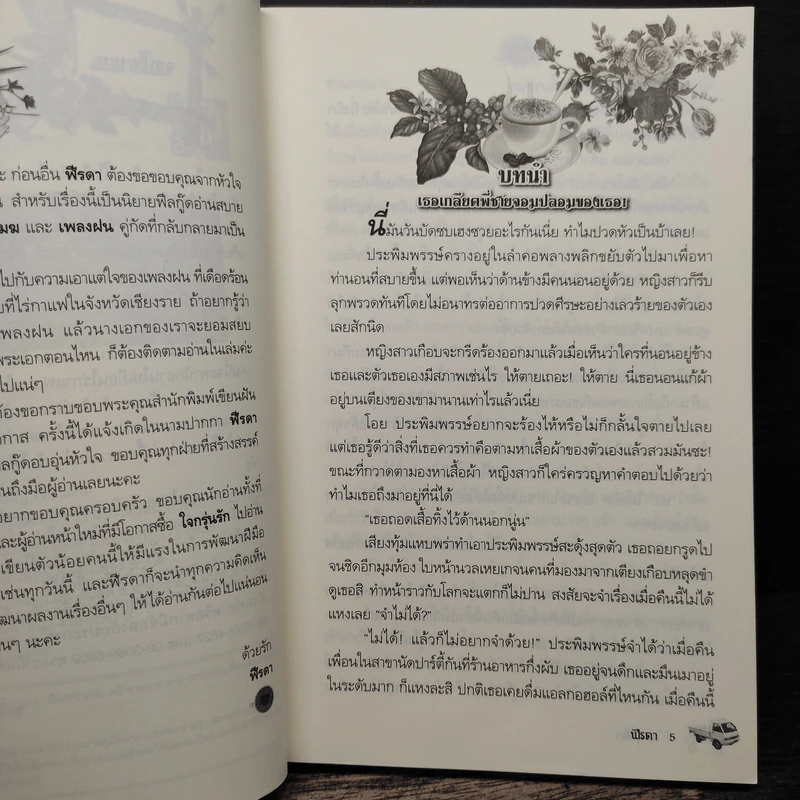 ะ ก่อนอื่น ฟีรดา ต้องขอขอบคุณจากหัวใจ
สำหรับเรื่องนี้เป็นนิยายฟีลกู๊ดอ่านสบาย
มฆ และ เพลงฝน คู่กัดที่กลับกลายมาเป็น
ไปกับความเอาแต่ใจของเพลงฝน ที่เดือดร้อน
ยที่ไร่กาแฟในจังหวัดเชียงราย ถ้าอยากรู้ว่า
พลงฝน แล้วนางเอกของเราจะยอมสยบ
พระเอกตอนไหน ก็ต้องติดตามอ่านในเล่มค่ะ
ไปแน่ๆ
ต้องขอกราบขอบพระคุณสำนักพิมพ์เขียนฝัน
กาส ครั้งนี้ได้แจ้งเกิดในนามปากกา ฟีรดา
ลกู๊ดอบอุ่นหัวใจ ขอบคุณทุกฝ่ายที่สร้างสรรค์
นถึงมือผู้อ่านเลยนะคะ
อยากขอบคุณครอบครัว ขอบคุณนักอ่านทั้งที่
และผู้อ่านหน้าใหม่ที่มีโอกาสซื้อ ใจกรุ่นรัก ไปอ่าน
เขียนตัวน้อยคนนี้ให้มีแรงในการพัฒนาฝีมือ
เช่นทุกวันนี้ และฟีรดาก็จะนำทุกความคิดเห็น
ฒนาผลงานเรื่องอื่นๆ ให้ได้อ่านกันต่อไปแน่นอน
นๆ นะคะ
ด้วยรัก
ฟีรดา
บทนำ
เธอเกลียดพี่ชายจอมปลอมของเธอ!
นี่มันวันบัดซบเฮงซวยอะไรกันเนี่ย ทำไมปวดหัวเป็นบ้าเลย!
ประพิมพรรษ์ครางอยู่ในลำคอพลางพลิกขยับตัวไปมาเพื่อหา
ท่านอนที่สบายขึ้น แต่พอเห็นว่าด้านข้างมีคนนอนอยู่ด้วย หญิงสาวก็รีบ
ลุกพรวดทันทีโดยไม่อนาทรต่ออาการปวดศีรษะอย่างเลวร้ายของตัวเอง
เลยสักนิด
หญิงสาวเกือบจะกรีดร้องออกมาแล้วเมื่อเห็นว่าใครที่นอนอยู่ข้าง
เธอและตัวเธอเองมีสภาพเช่นไร ให้ตายเถอะ! ให้ตาย นี่เธอนอนแก้ผ้า
อยู่บนเตียงของเขามานานเท่าไรแล้วเนี่ย
โอย ประพิมพรรษ์อยากจะร้องไห้หรือไม่ก็กลั้นใจตายไปเลย
แต่เธอรู้ดีว่าสิ่งที่เธอควรทำคือตามหาเสื้อผ้าของตัวเองแล้วสวมมันซะ!
ขณะที่กวาดตามองหาเสื้อผ้า หญิงสาวก็ใคร่ครวญหาคำตอบไปด้วยว่า
ทำไมเธอถึงมาอยู่ที่นี่ได้
"เธอถอดเสื้อทิ้งไว้ด้านนอกนู่น"
เสียงทุ้มแหบพร่าทำเอาประพิมพรรษ์สะดุ้งสุดตัว เธอถอยกรูดไป
จนชิดอีกมุมห้อง ใบหน้านวลเหยเกจนคนที่มองมาจากเตียงเกือบหลุดขำ
ดูเธอสิ ทำหน้าราวกับโลกจะแตกก็ไม่ปาน สงสัยจะจำเรื่องเมื่อคืนนี้ไม่ได้
แหงเลย "จำไม่ได้?"
"ไม่ได้! แล้วก็ไม่อยากจำด้วย!" ประพิมพรรษ์จำได้ว่าเมื่อคืน
เพื่อนในสาขานัดปาร์ตี้กันที่ร้านอาหารกึ่งผับ เธออยู่จนดึกและมึนเมาอยู่
ในระดับมาก ก็แหงละสิ ปกติเธอเคยดื่มแอลกอฮอล์ที่ไหนกัน เมื่อคืนนี้
ฟีรดา 5